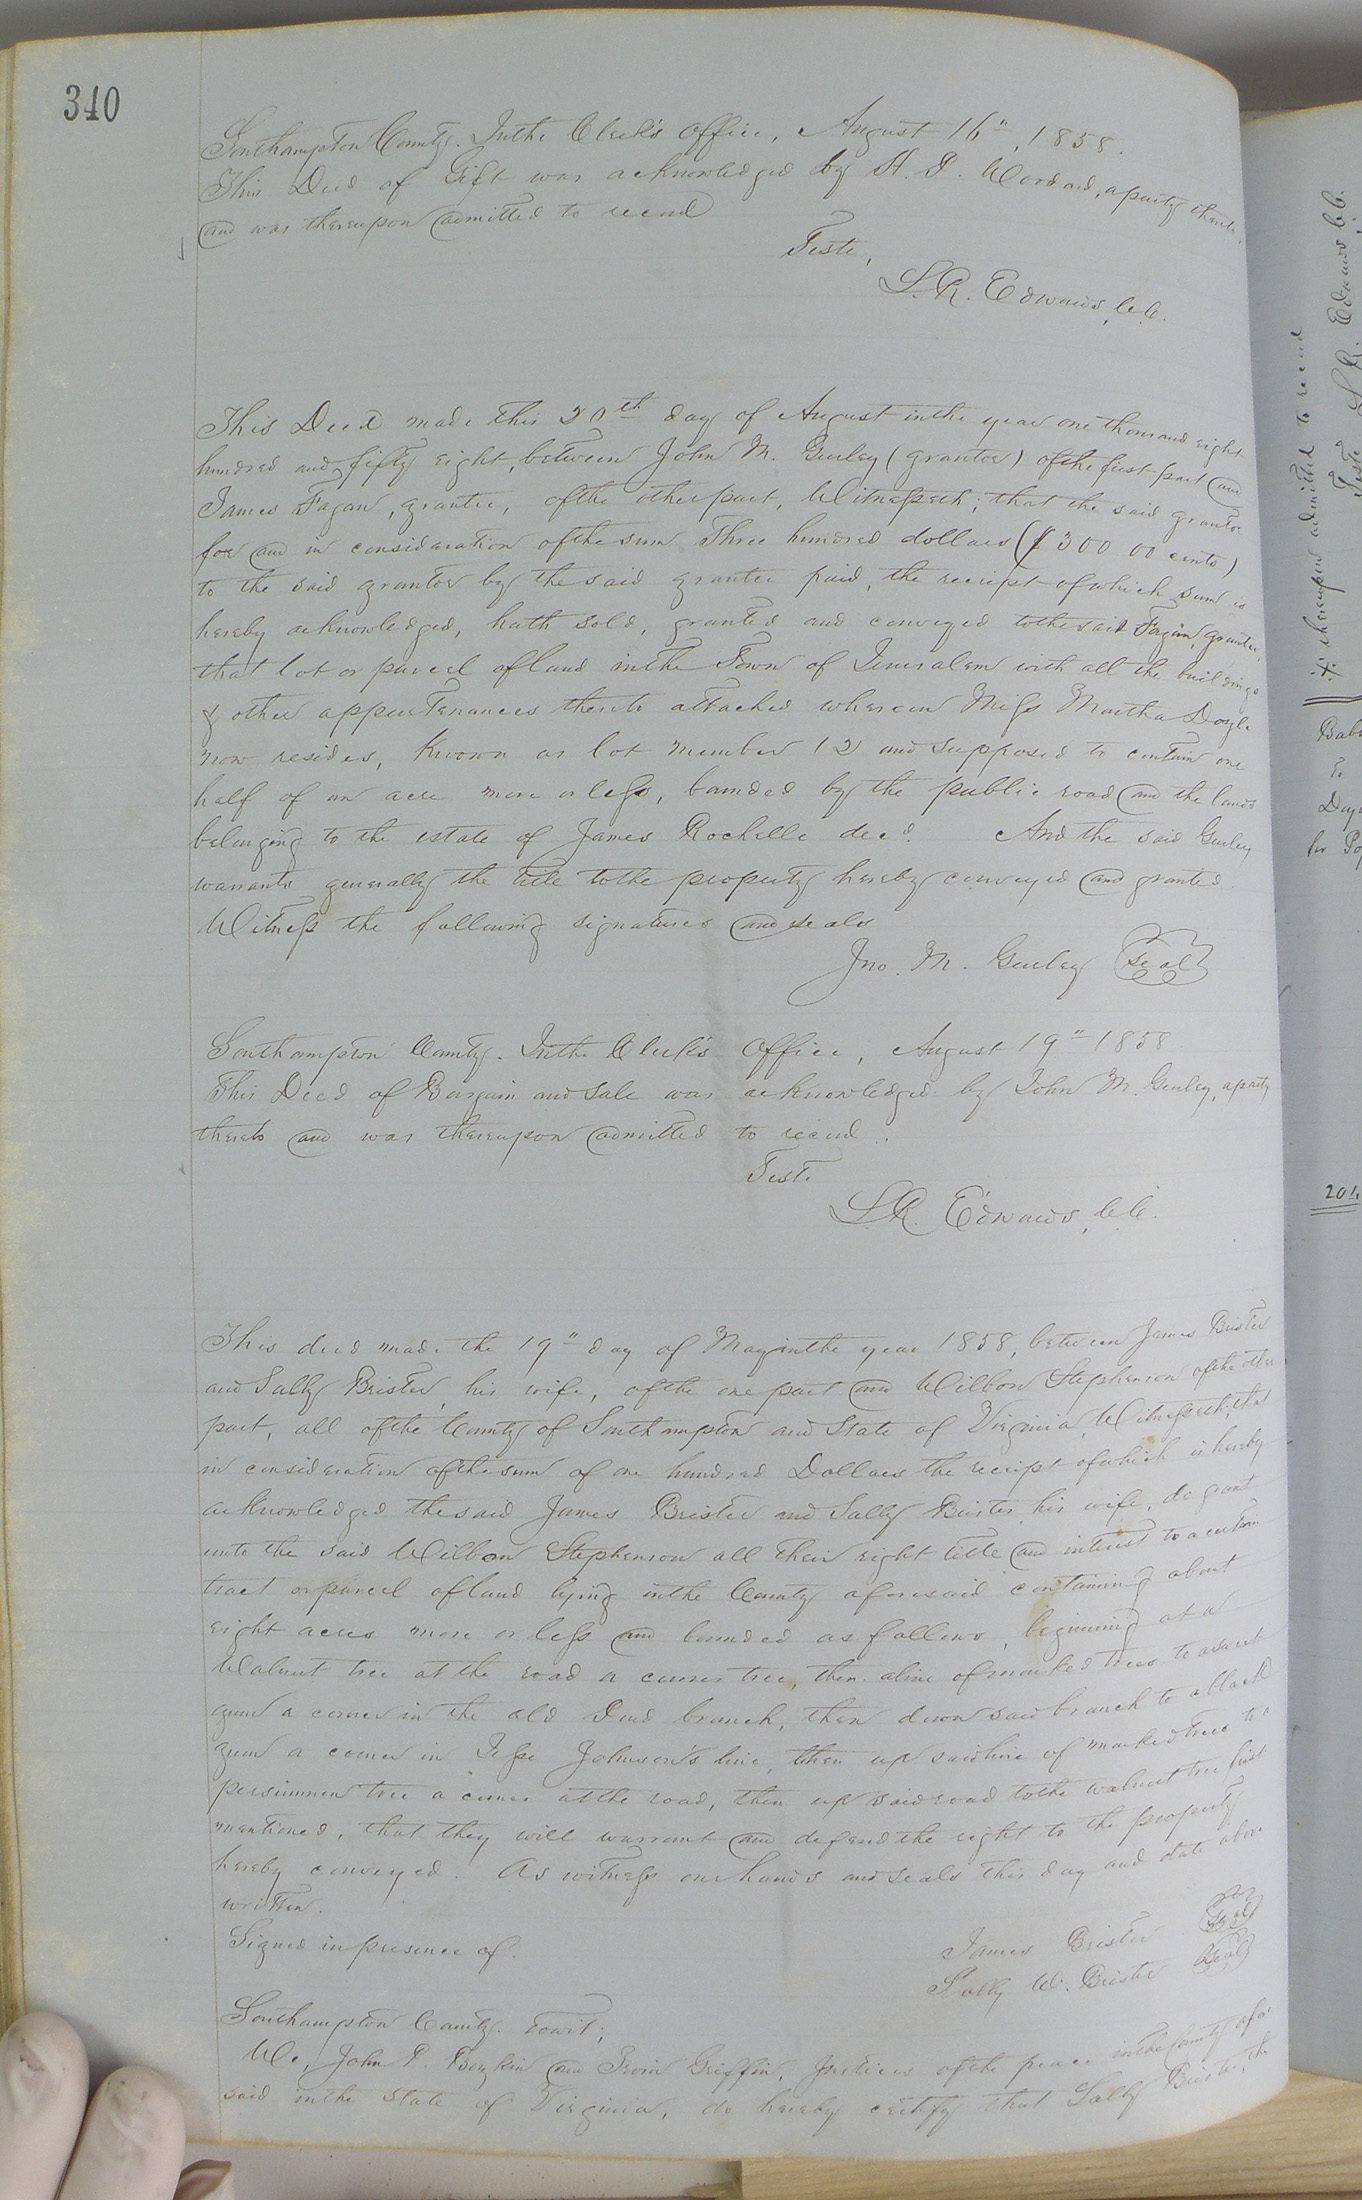 340
Southampton County. In the Clerk's Office, August 16", 1858.
This Deed of Gift was acknowledged by H. P. Woodard, a party thereto,
and was thereupon admitted to record
Teste,
L. R. Edwards, C.C.
This Deed made this 20th day of August in the year one thousand eight
hundred and fifty eight, between John M. Gurley (grantor) of the first part and
James Fagan, grantee, of the other part, Witnesseth; that the said grantor
for and in consideration of the sum Three hundred dollars ($300 00 cents)
to the said grantor by the said grantee paid, the receipt of which sum is
hereby acknowledged, hath sold, granted and conveyed to the said Fagan, grantee,
that lot or parcel of land in the Town of Jerusalem with all the buildings
& other appurtenances thereto attached wherein Miss Martha Doyle
now resides, known as lot number 12 and supposed to contain one
half of an acre more or less, bounded by the public road and the lands
belonging to the estate of James Rochelle decd. And the said Gurley
warrants generally the title to the property hereby conveyed and granted.
Witness the following signatures and seals
Jno. M. Gurley Seal
Southampton County. In the Clerk's Office, August 19" 1858
This Deed of Bargain and Sale was acknowledged by John M. Gurley, a party
thereto and was thereupon admitted to record.
Teste
L. R. Edwards, C.C.
This deed made the 19" day of May in the year 1858, between James Brister
and Sally Brister, his wife, of the one part and Wilbon Stephenson of the other
part, all of the County of Southampton and State of Virginia, Witnesseth; that
in consideration of the sum of one hundred Dollars the receipt of which is hereby
acknowledged the said James Brister and Sally Brister his wife, do grant
unto the said Wilbon Stephenson all their right title and interest to a certain
tract or parcel of land lying in the County aforesaid containing about
eight acres more or less and bounded as follows, beginning at a
Walnut tree at the road a corner tree, then a line of marked trees to a sweet
gum a corner in the old branch, then down said branch to a black
gum a corner in Jesse Johnson's line, then up said line of marked trees to a
persimmon tree a corner at the road, then up said road to the walnut tree first
mentioned, that they will warrant and defend the right to the property
hereby conveyed. As witness our hands and seals this day and date above
written.
Signed in presence of.
James Brister Seal
Sally W. Brister Seal
Southampton County. towit;
We, John P. Boykin and Irvin Griffin, Justices of the peace in the County afore
said in the State of Virginia, do hereby certify that Sally Brister, the
thereupon admitted to record
Teste L. R. Edwards C.C.